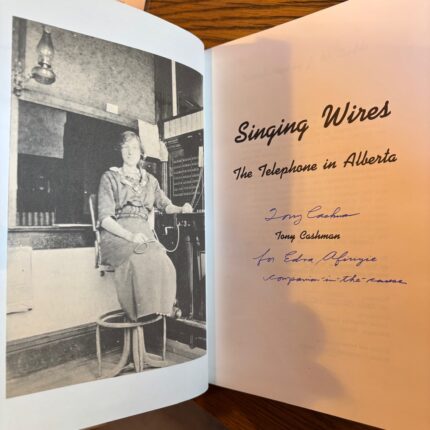 Singing Wires
The Telephone in Alberta
Tony Cashman
Tony Cashman
for Edra
companion-in-the-cause